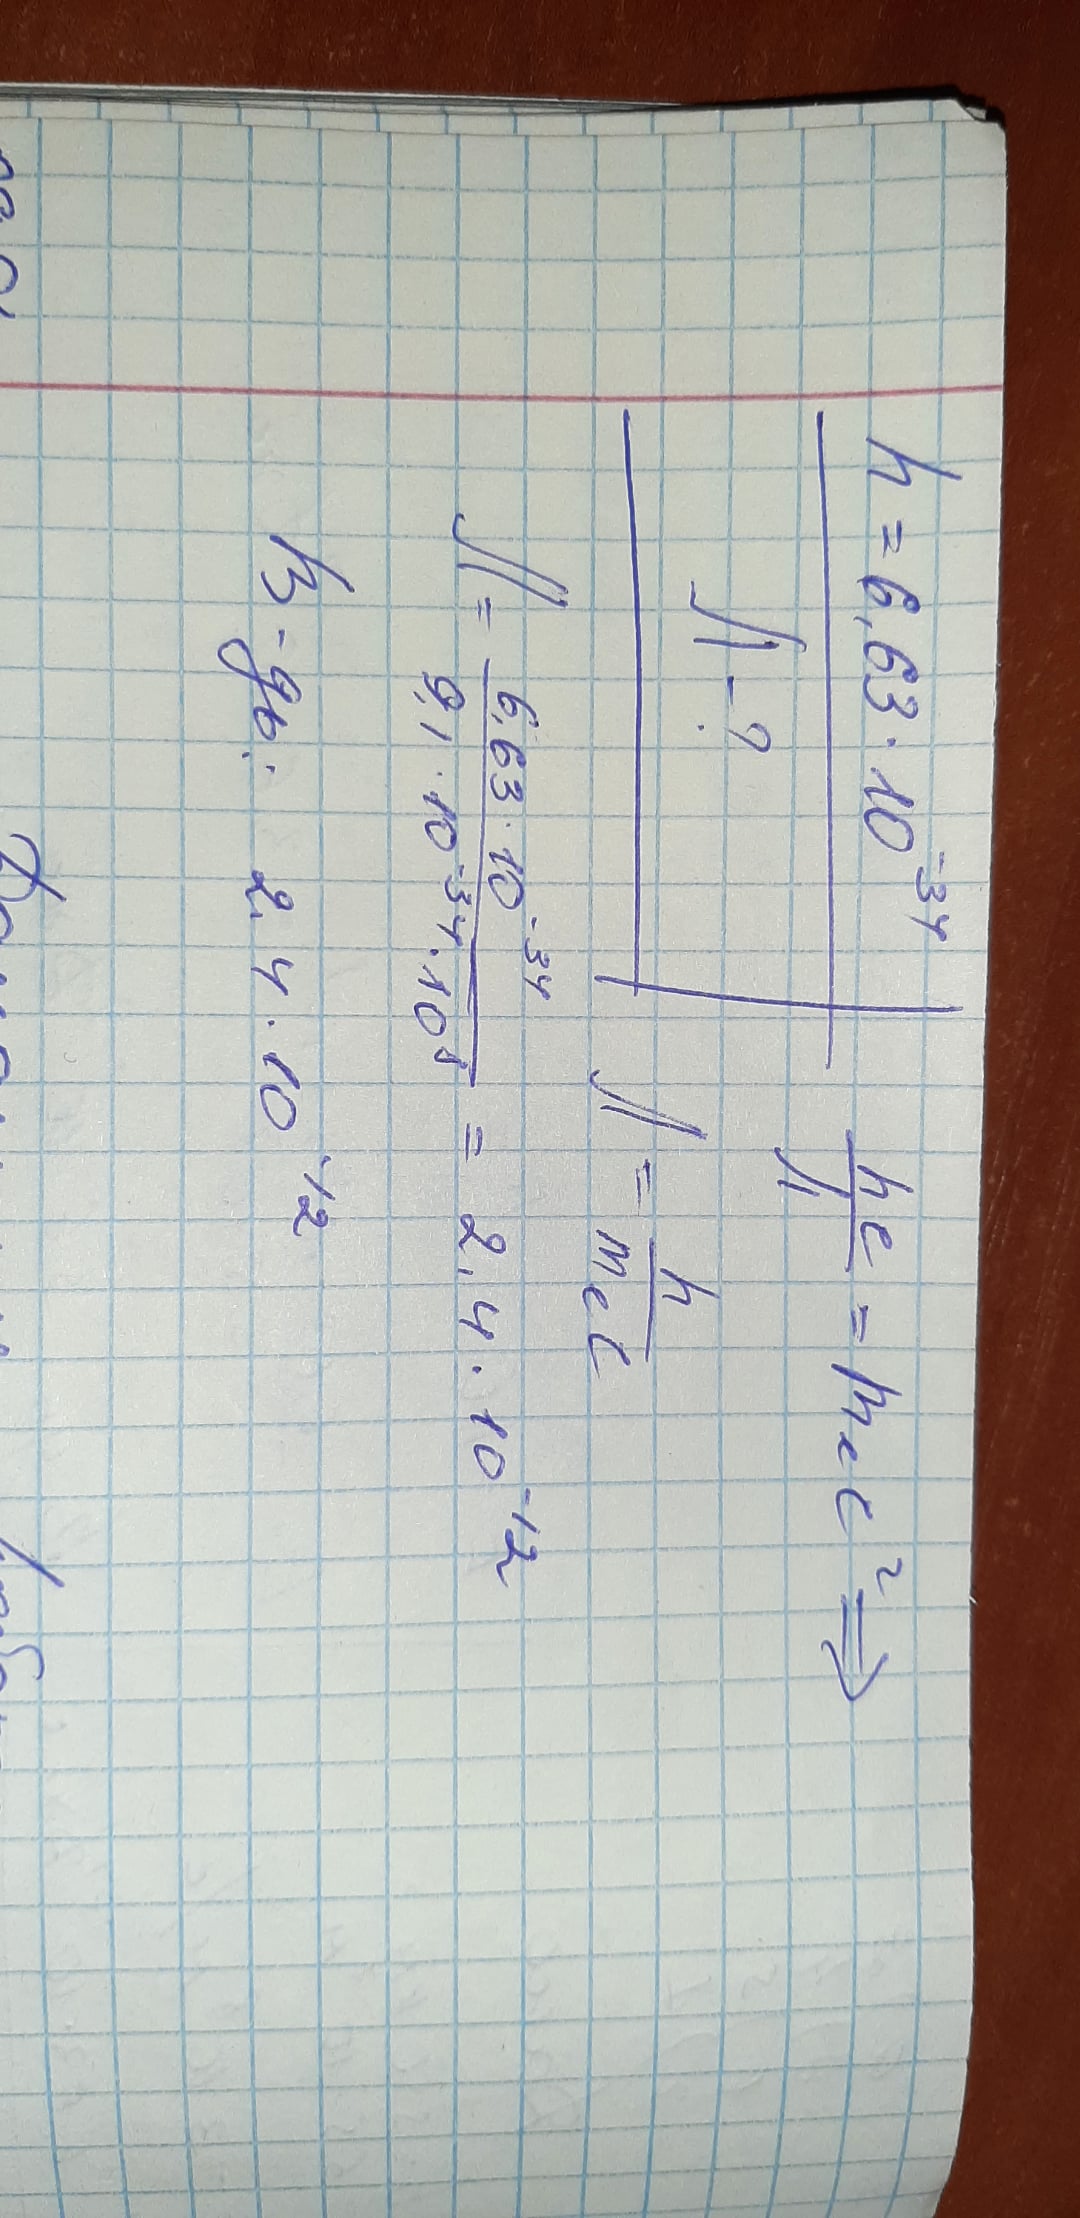 h = 6,63 · 10⁻³⁴
λ - ?
hc/λ = mₑc² ⇒
λ = h/mₑc
λ = 6,63 · 10⁻³⁴ / 9,1 · 10⁻³⁴ · 10⁸ = 2,4 · 10⁻¹²
В-дь: 2,4 · 10⁻¹²